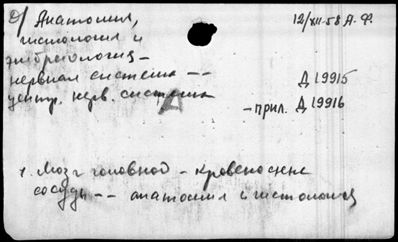 D/ Анатомия,
гистология и
эмбриология –
нервная система – –
центр. нерв. система
А
12/XII-58 А. Ф.
Д 19915
– прил. Д 19916
1. Мозг головной – кровеносные
сосуды – – анатомия и гистология